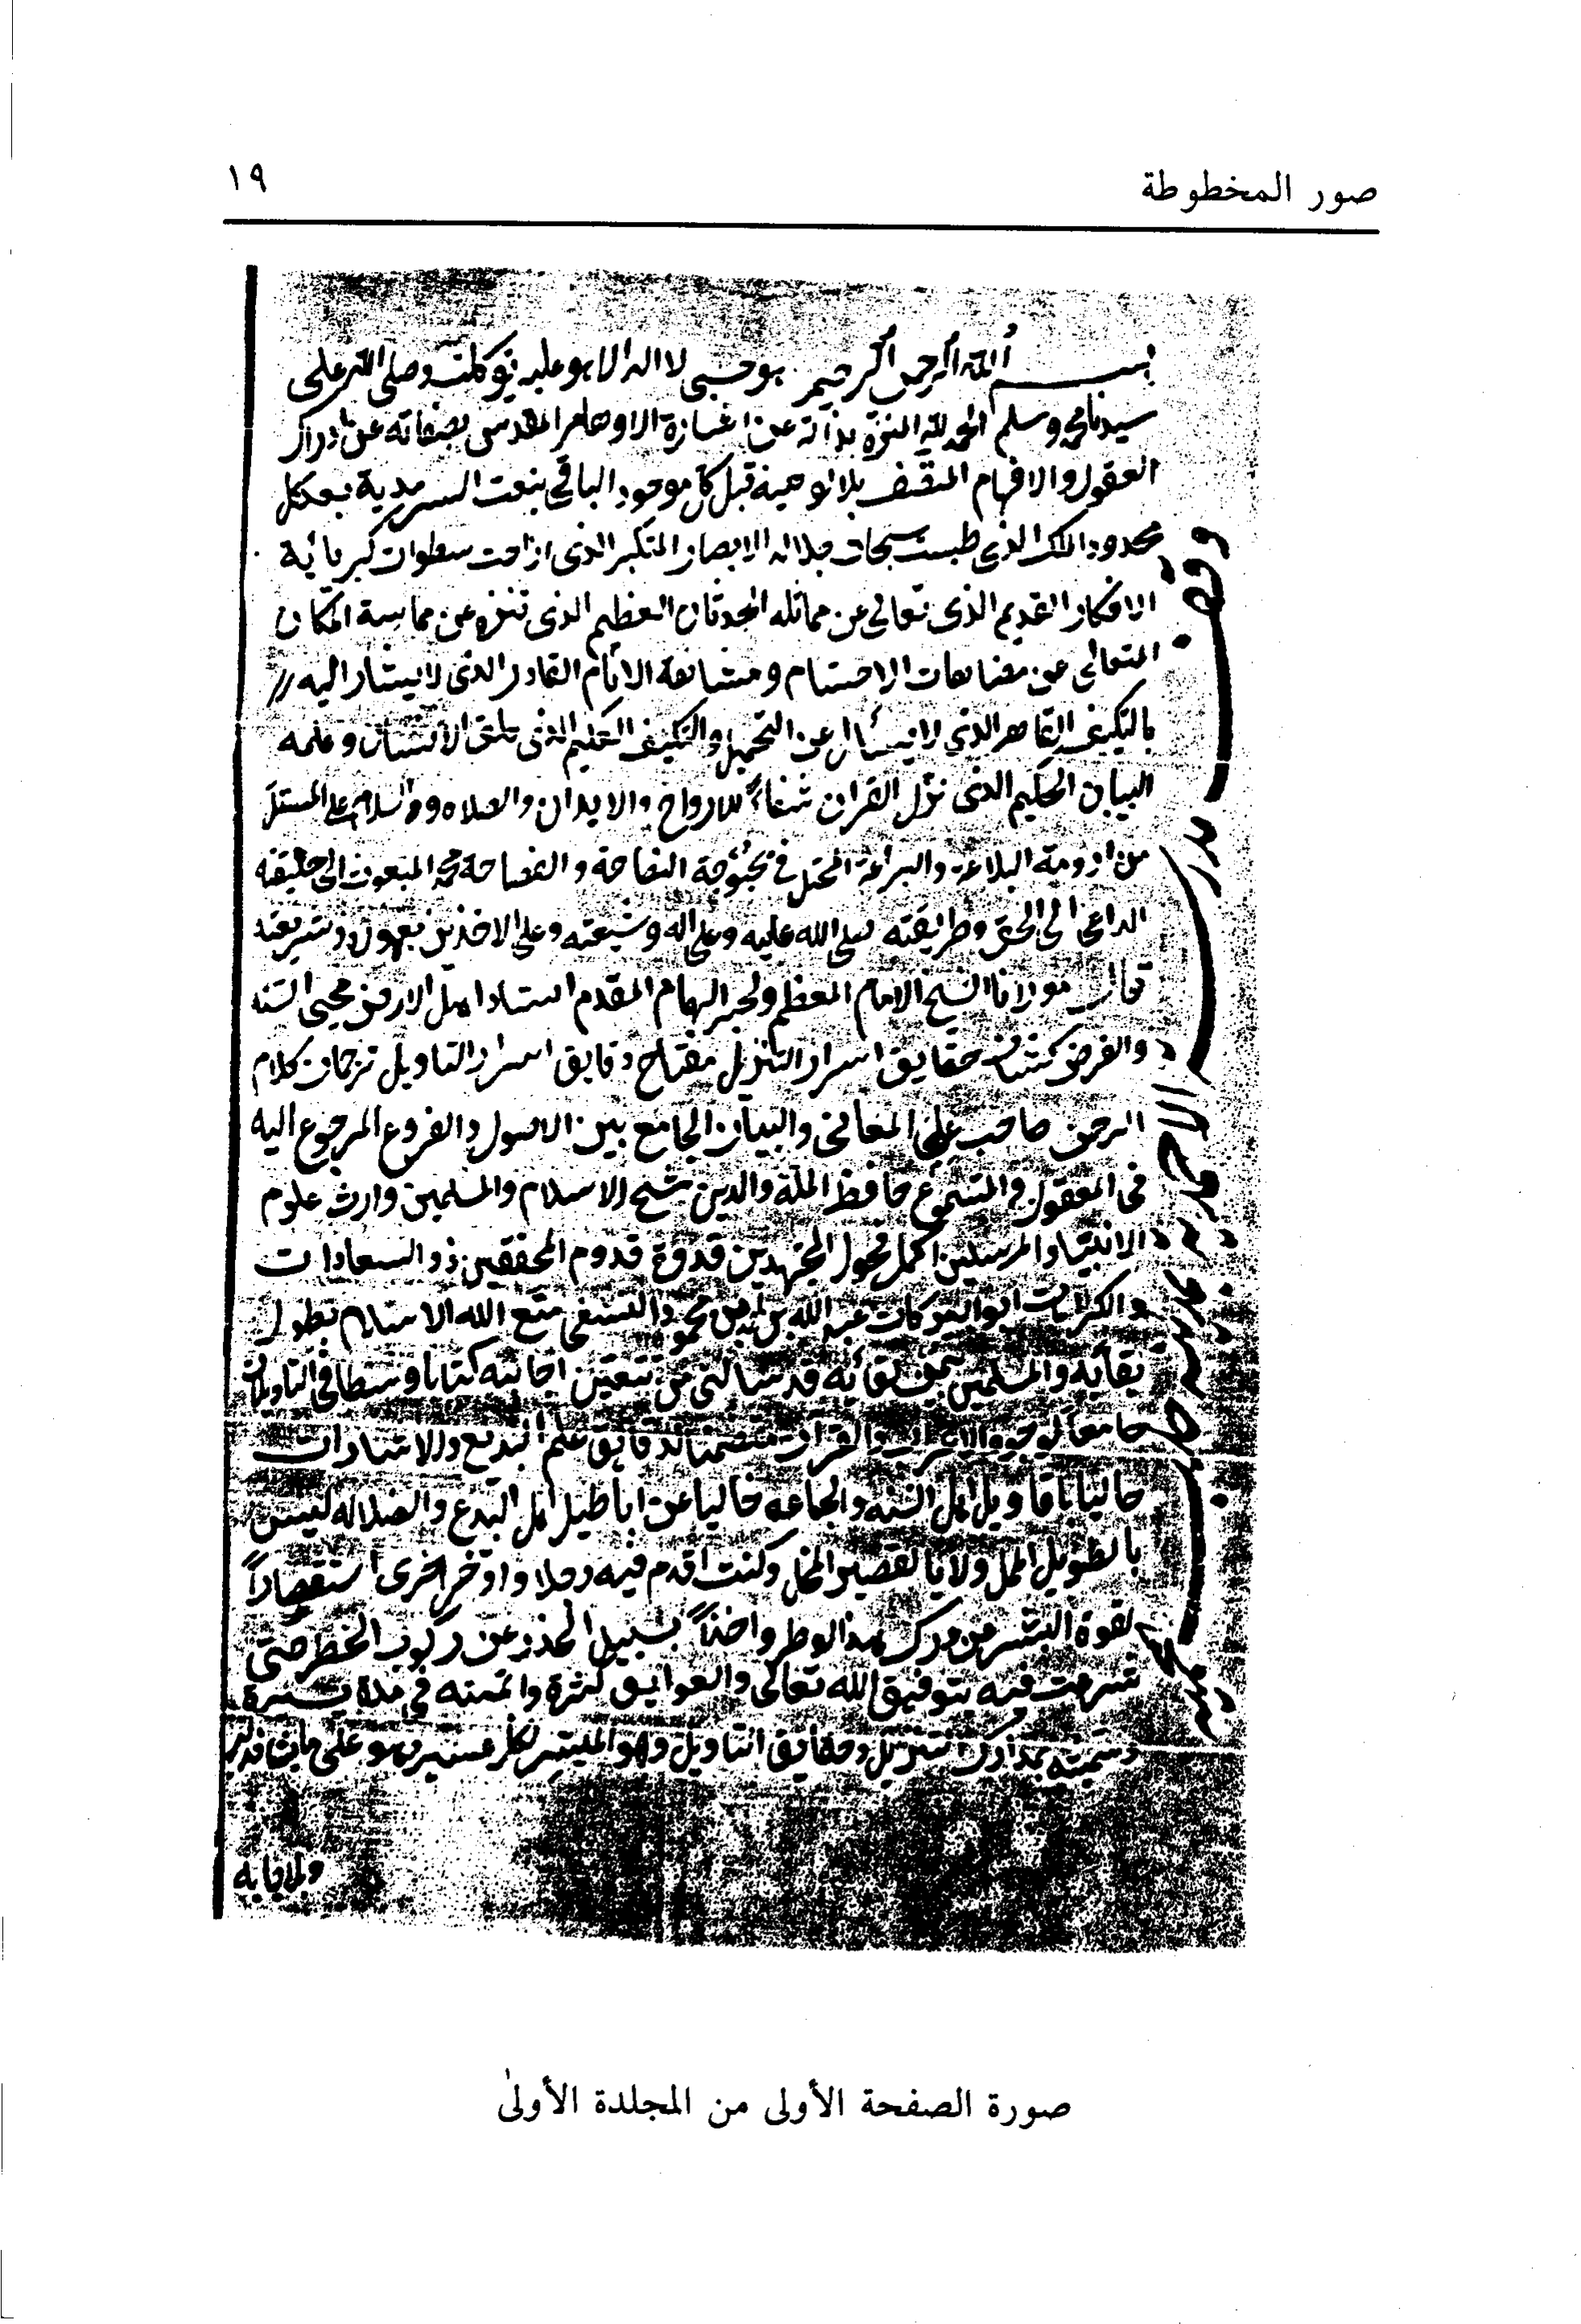 صور المخطوطة
١٩
بسم الله الرحمن الرحيم هو حسبى لا اله الا هو عليه توكلت وصلى الله على
سيدنا محمد وسلم الحمد لله المنزه بذاته عن اشارة الاوهام المقدس بصفاته عن ادراك
العقول والافهام المتصف بالالوهية قبل كل موجود الباقى بنعت السرمدية بعد كل
محدود الملك الذى طمست سبحات جلاله الابصار المتكبر الذى ازاحت سطوات كبريائه
الافكار القديم الذى تعالى عن مماثلة الحدثان العظيم الذى تنزه عن مماسة المكان
المتعالى عن مضاهات الاجسام ومشابهة الانام القادر الذى لا يشار اليه
بالتكييف القاهر الذى لا يسأل عن التحميل والتكليف العليم الذى خلق الانسان وعلمه
البيان الحكيم الذى نزل القران شفاءً للارواح والابدان والصلاه والسلام على المستل
من ارومة البلاغة والبراعة المحتل فى بحبوحة النصاحة والفصاحة محمد المبعوث الى خليقته
الداعى الى الحق وطريقته صلى الله عليه وعلى اله وشيعته وعلى الاخذين شريعته
قال مولانا الشيخ الامام المعظم والحبر الهمام المقدم استاد اهل الارض محيى السنه
والفرض كشاف حقايق اسرار التنزيل مفتاح دقايق اسرار التاويل ترجمان كلام
الرحمن صاحب علمى المعانى والبيان الجامع بين الاصول والفروع المرجوع اليه
فى المعقول والمسموع حافظ الملة والدين شيخ الاسلام والمسلمين وارث علوم
الانبياء والمرسلين اكمل فحول المجتهدين قدوة قروم المحققين ذو السعادات
والكرامات ابو البركات عبد الله بن احمد بن محمود النسفى متع الله الاسلام بطول
بقائه والمسلمين بيمن لقائه قد سالنى من تتعين اجابته كتابا وسطا فى التاويلات
جامعا لوجوه الاعراب والقراآت متضمنا لدقايق علم البديع والاشارات
حاليا باقاويل اهل السنه والجماعه خاليا عن اباطيل اهل البدع والضلاله ليس
بالطويل الممل ولا بالقصير المخل وكنت اقدم فيه رجلا واوخر اخرى استقصاراً
لقوة البشر عن درك هذا الوطر واخذاً بسبيل الحذر عن ركوب الخطر حتى
شرعت فيه بتوفيق الله تعالى والعوايق كثيرة واتممته فى مدة يسيرة
وسميته بمدارك التنزيل وحقايق التاويل وهو الميسر لكل عسير وهو على ما يشا قدير
وبالاجابه
صورة الصفحة الأولى من المجلدة الأولى